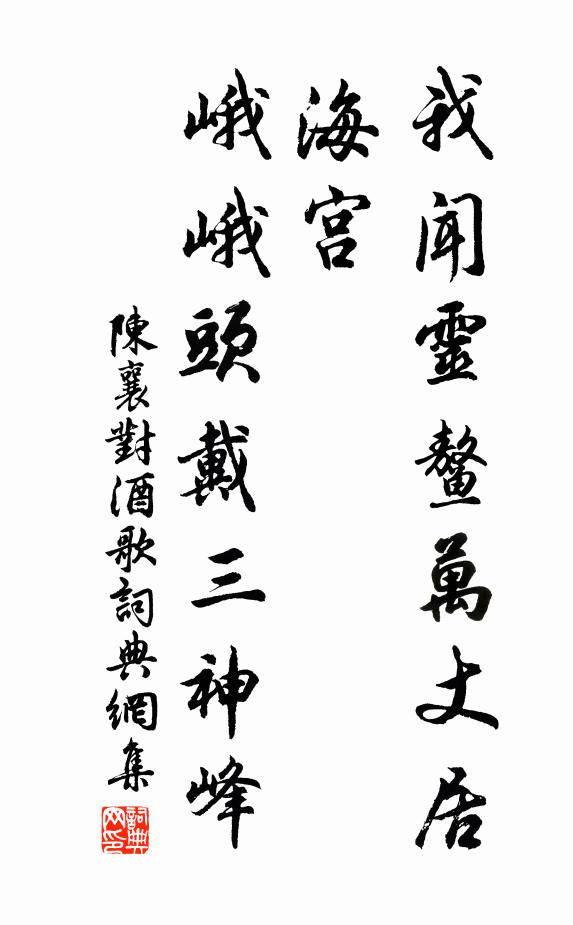 我聞靈鼇萬丈居
海宮
峨峨頭戴三神峰
陳襄對酒歌詞典網集
詞典網印